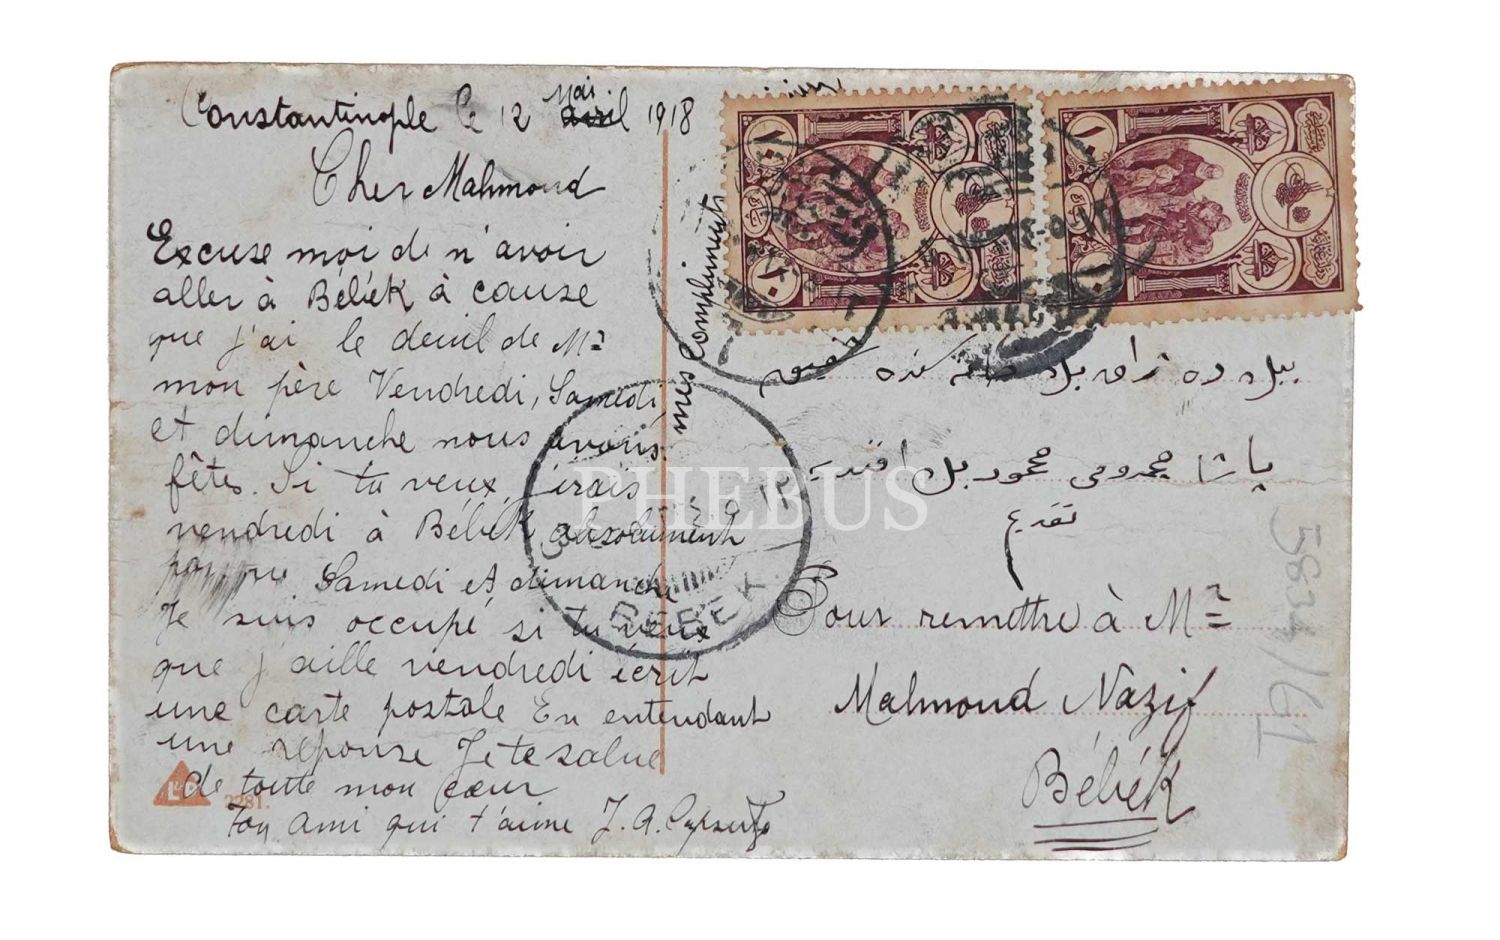 Constantinople le 12 Mai avril 1918
Cher Mahmoud
Excuse moi de n'avoir
aller à Bébék à cause
que j'ai le deuil de Mr
mon père Vendredi, Samedi
et dimanche nous avons
fêtes. Si tu veux, j'irais
vendredi à Bébék absolument
Samedi et dimanche
Je suis occupé si tu veux
que j'aille vendredi écrit
une carte postale En entendant
une réponse Je te salue
de toute mon cœur
Ton ami qui t'aime J. A.
mes compliments
ببك ده
پاشا محدومى محمود بك افندى يه
تقديم
Pour remettre à Mr
Mahmoud Nazif
Bébék
BEBEK
L&P
2281.
5834/61
PHEBUS